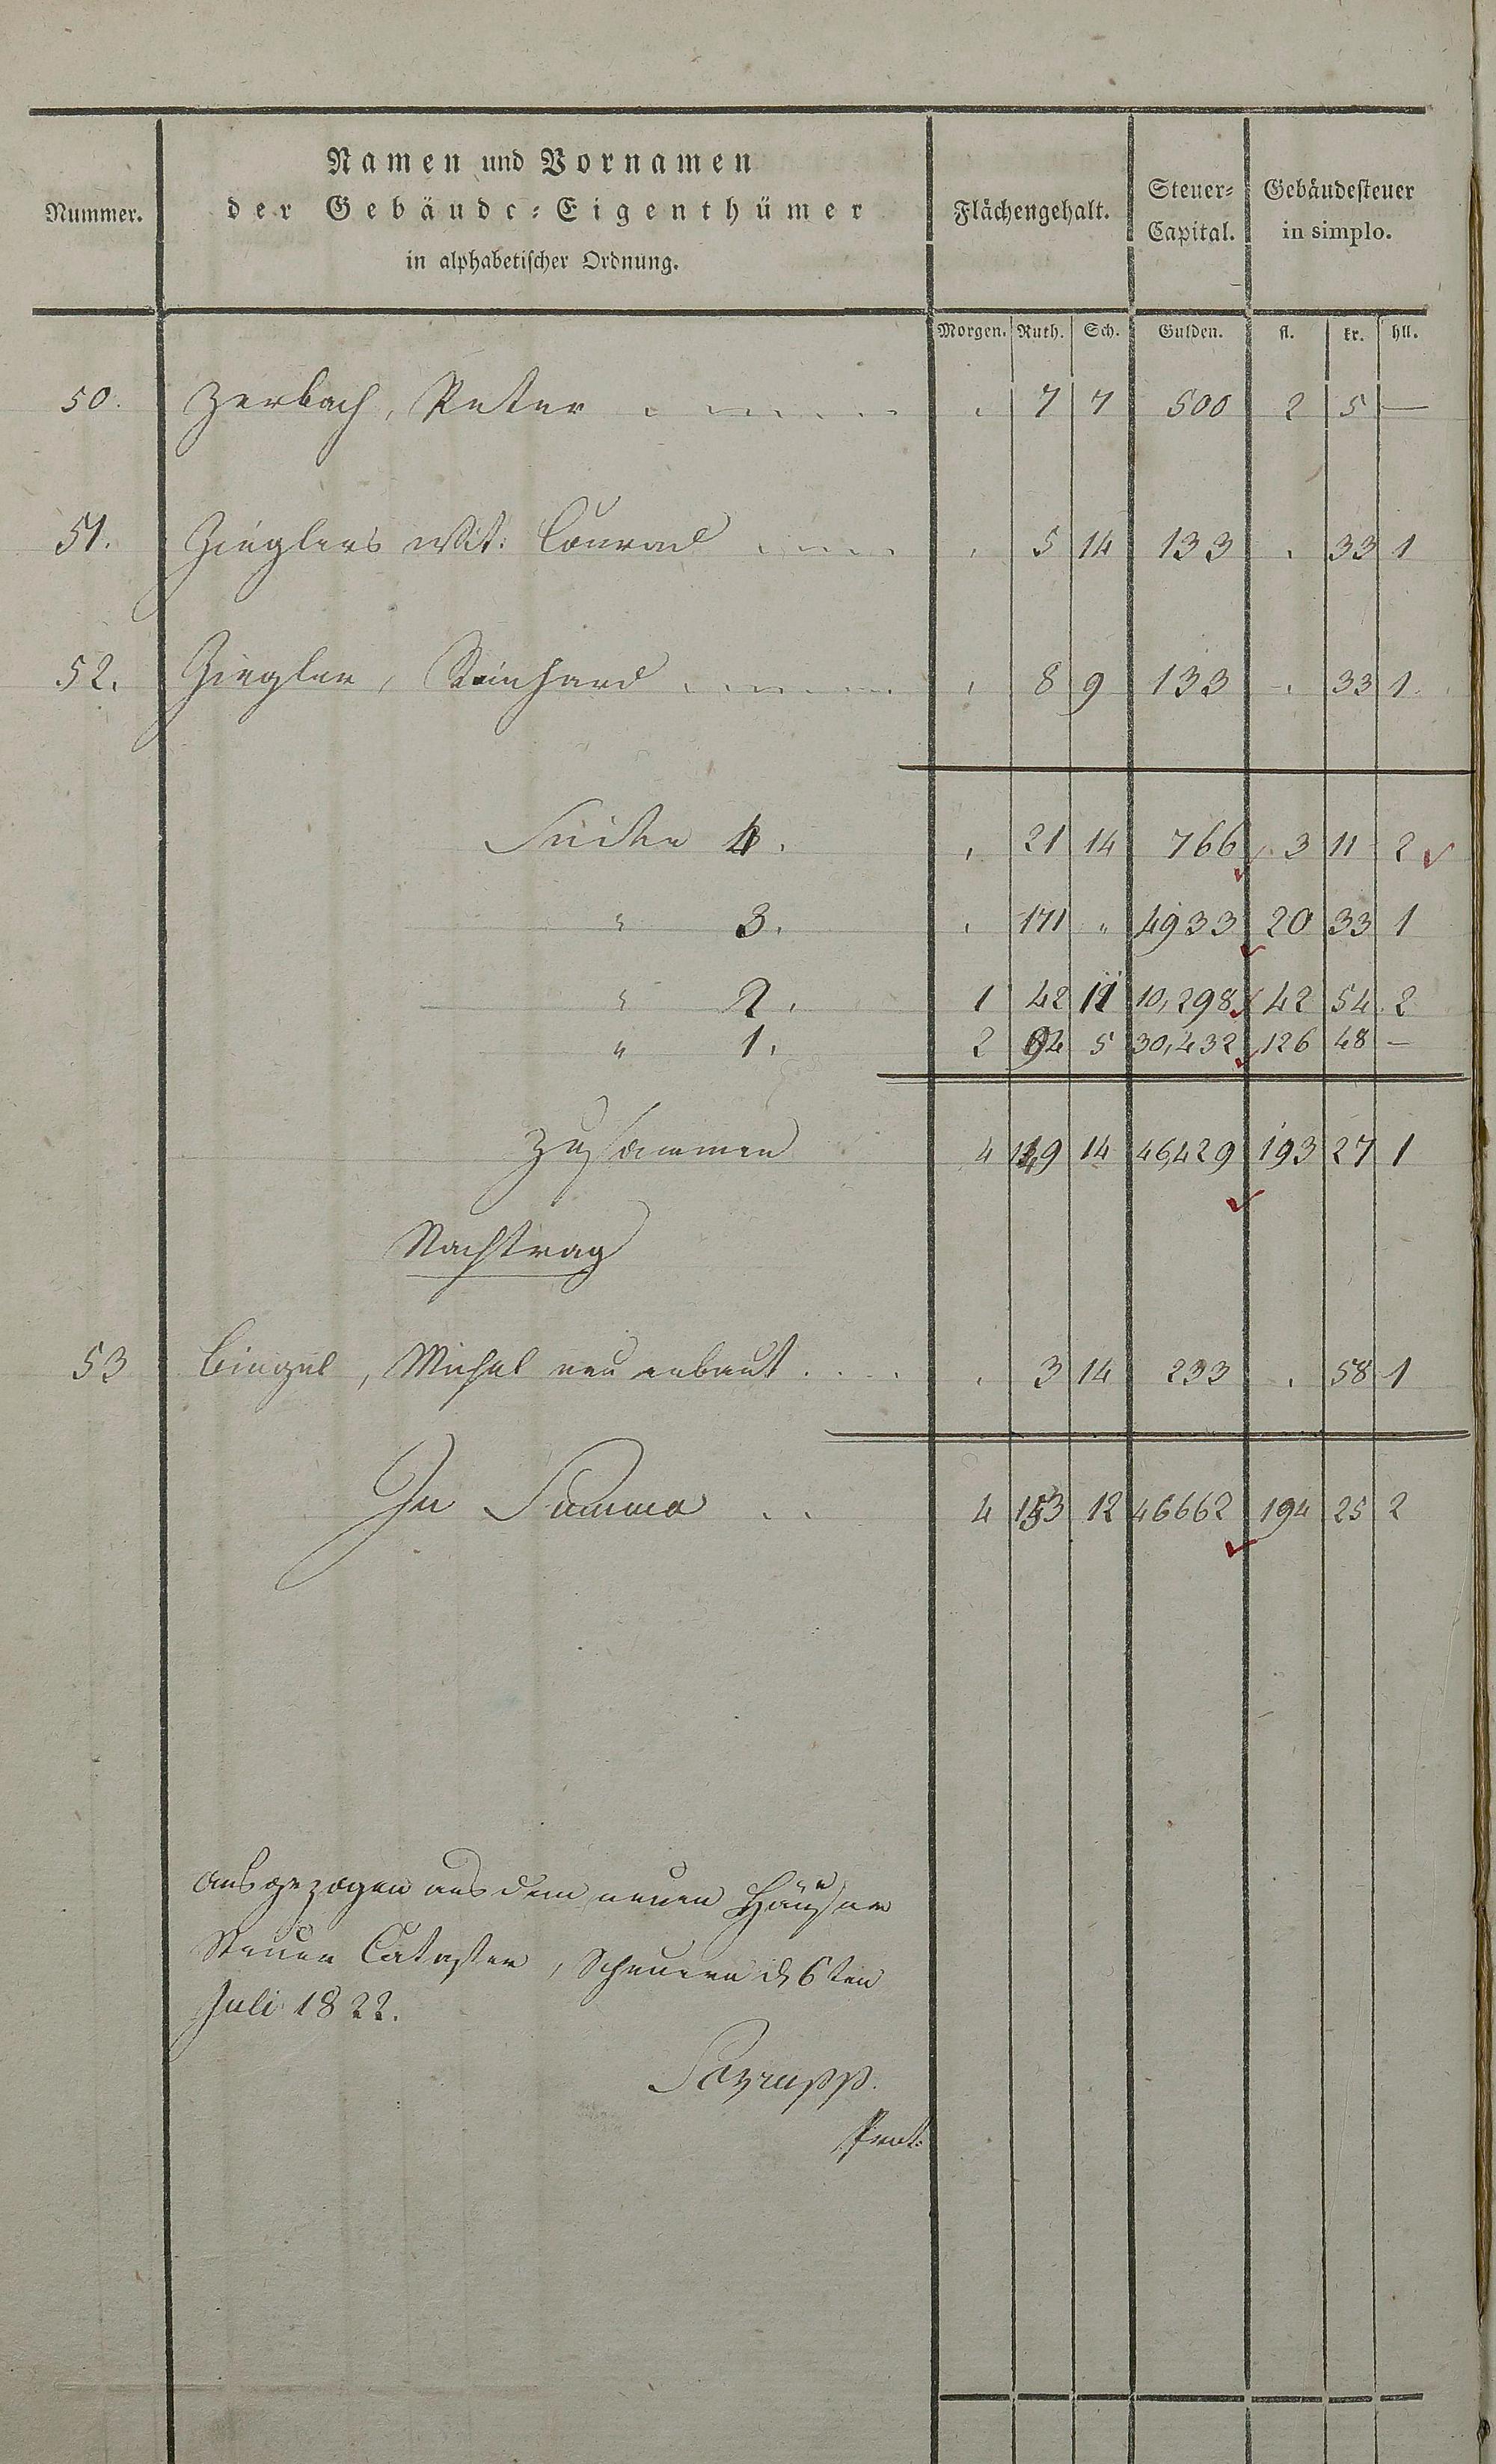 Nummer.
Namen und Vornamen
der Gebäude-Eigenthümer
in alphabetischer Ordnung.
Flächengehalt.
Steuer-
Capital.
Gebäudesteuer
in simplo.
Morgen. Ruth. Sch. Gulden. fl. kr. hll.
50. Zerbach, Peter . . . . . . . 7 7 500 2 5 —
51. Zieglers Wit: Conrad . . . . . 5 14 133 . 33 1
52. Ziegler, Reinhard . . . . . . 8 9 133 . 33 1.
Seiten 4. . 21 14 766 3 11 2
" 3. . 171 " 4933 20 33 1
" 2. 1 42 11 10,298 42 54 2
" 1. 2 94 5 30,432 126 48 —
Zusammen 4 149 14 46,429 193 27 1
Nachtrag
53 Bingel, Michel neu erbaut . . . . . 3 14 233 . 58 1
In Summa . . 4 153 12 46662 194 25 2
Ausgezogen aus dem neuen Häuser
Steuer Cataster, Scheuern d 6ten
Juli 1822.